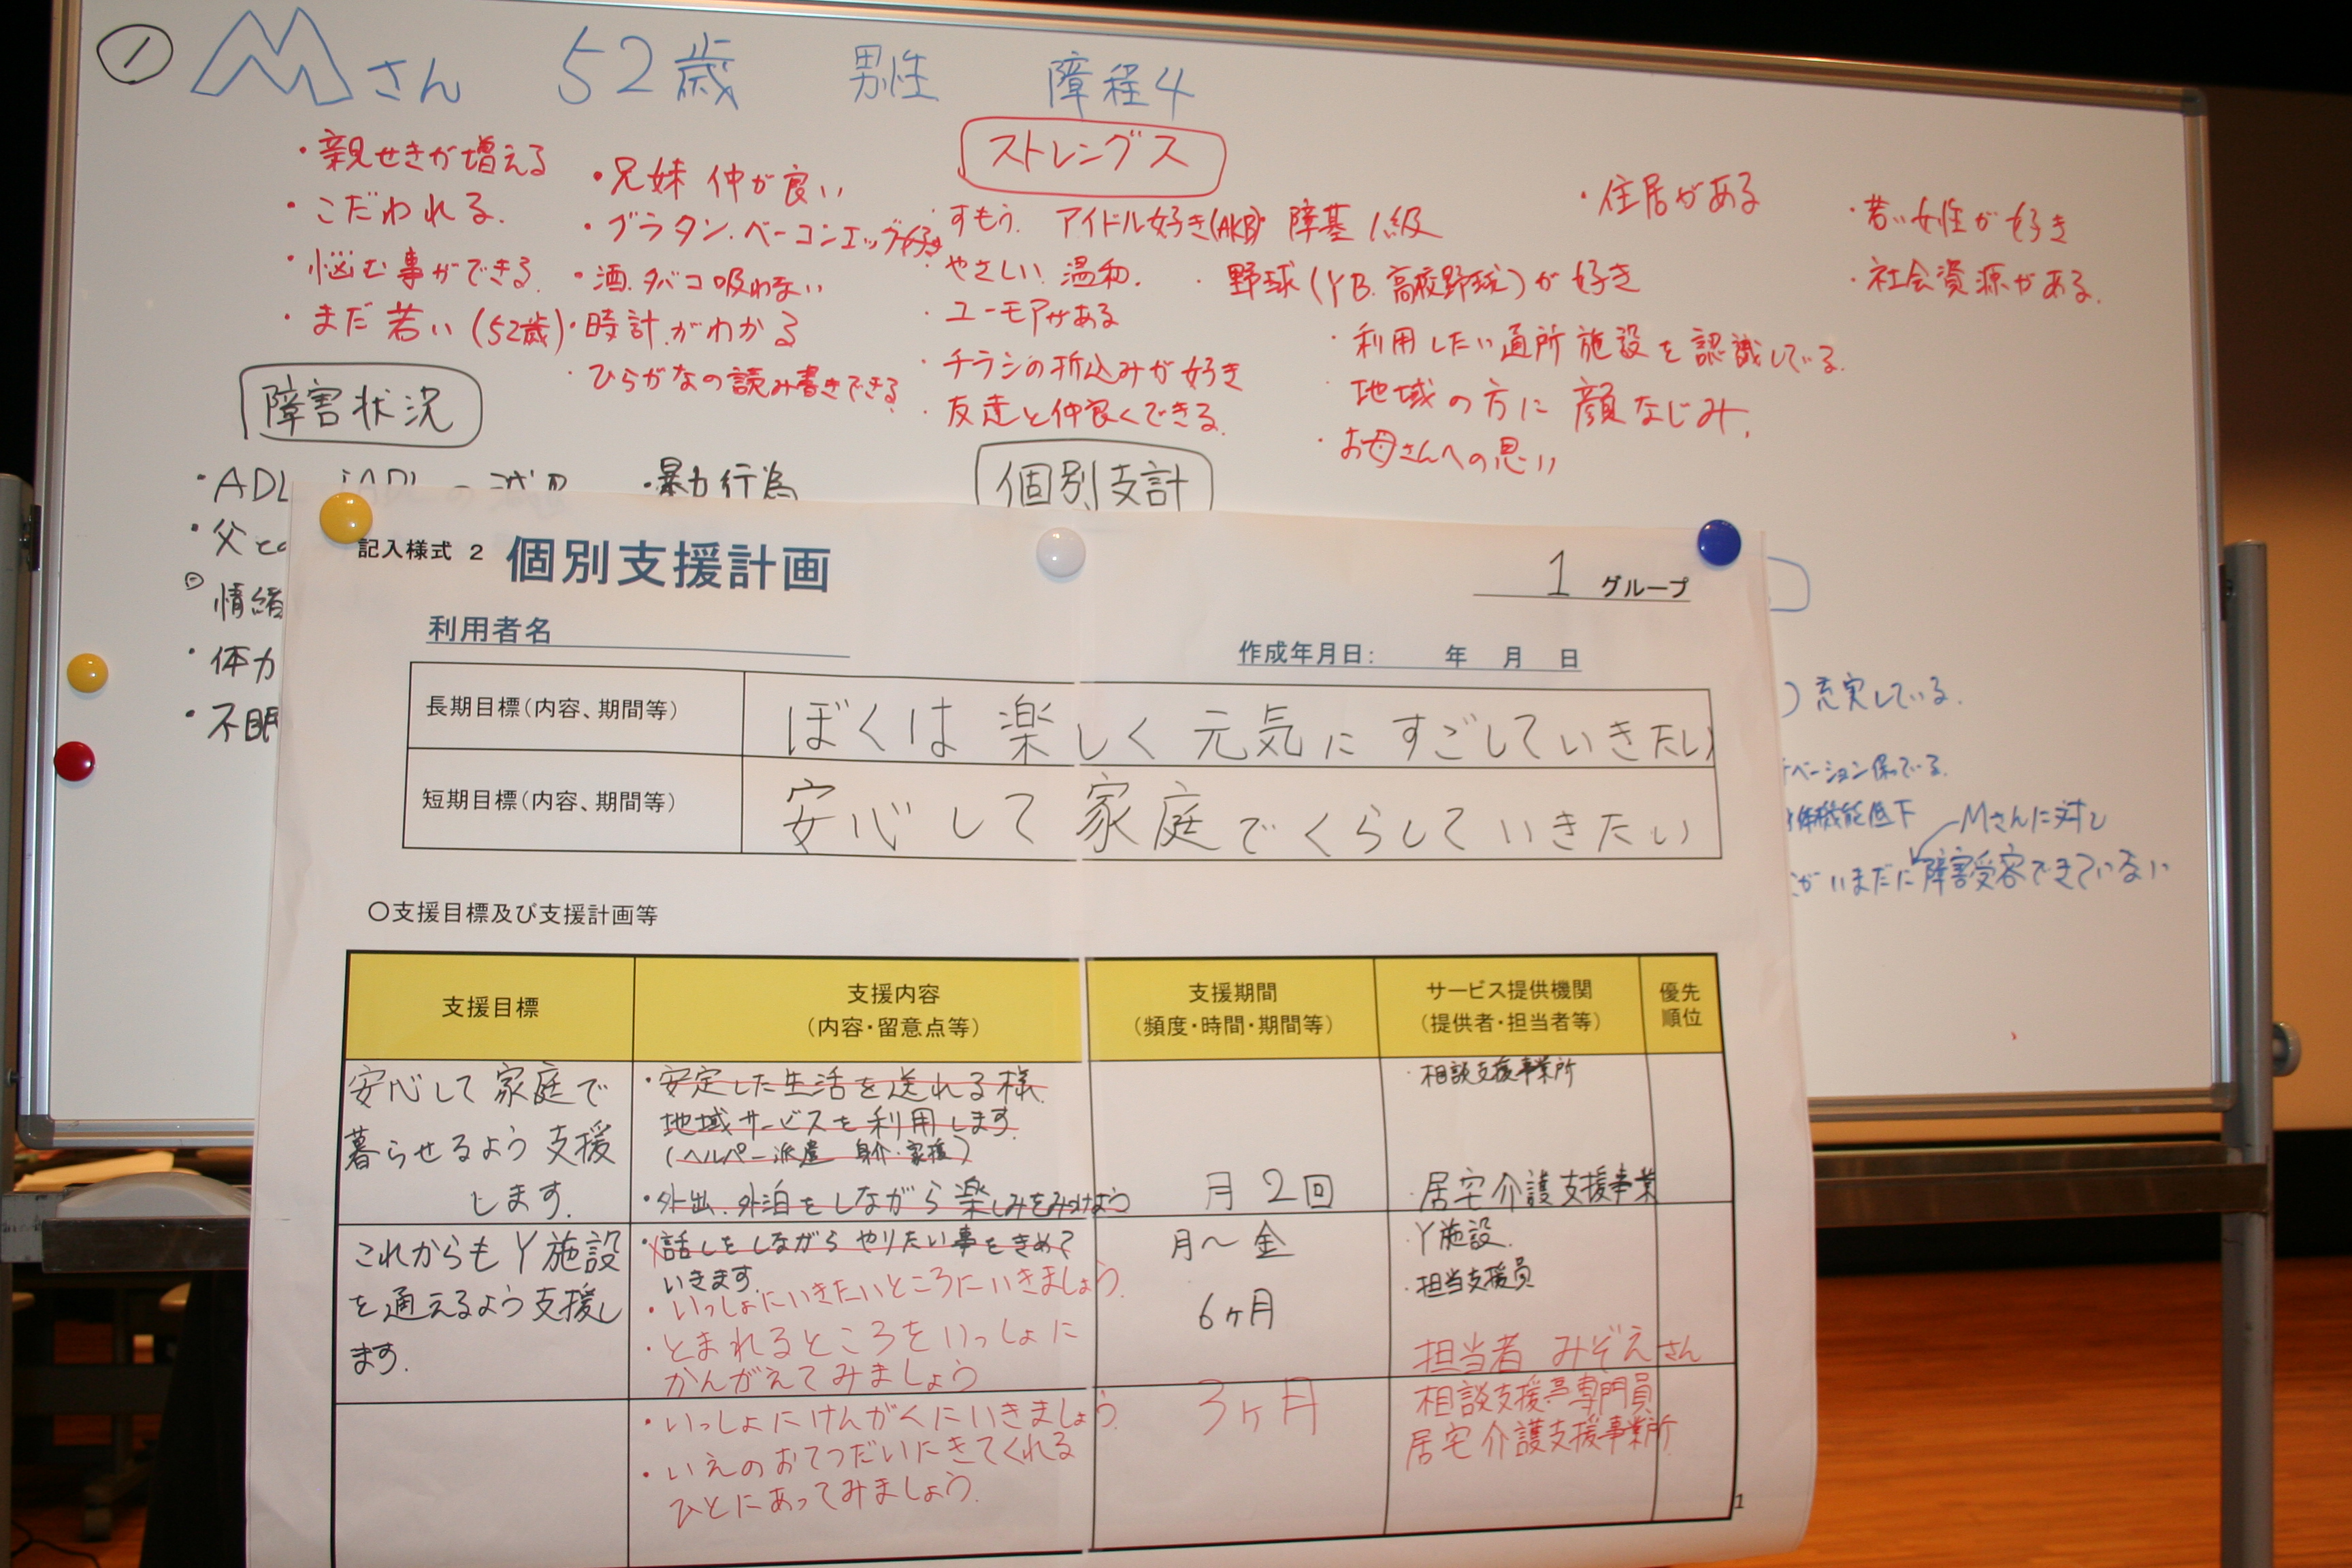 ① Mさん 52歳 男性 障程4
ストレングス
・親せきが増える
・こだわれる。
・悩む事ができる。
・まだ若い(52歳)
・兄妹仲が良い
・ブラタン.ベーコンエッグ好き
・酒.タバコ吸わない
・時計がわかる
・ひらがなの読み書きできる。
・すもう. アイドル好き(AKB)
・やさしい. 温和.
・ユーモアがある
・チラシの折込みが好き
・友達と仲良くできる.
・障基1級
・野球(YB.高校野球)が好き
・利用したい通所施設を認識している.
・地域の方に顔なじみ.
・お母さんへの思い
・住居がある
・若い女性が好き
・社会資源がある.
障害状況
・ADL
・暴力行為
・父と
情緒
・体力
・不眠
個別支計
充実している.
ベーション保っている.
機能低下
Mさんに対し
がいまだに障害受容できていない
記入様式 2 個別支援計画
1 グループ
利用者名
作成年月日: 年 月 日
長期目標(内容、期間等)
ぼくは楽しく元気にすごしていきたい
短期目標(内容、期間等)
安心して家庭でくらしていきたい
〇支援目標及び支援計画等
支援目標
支援内容
(内容・留意点等)
支援期間
(頻度・時間・期間等)
サービス提供機関
(提供者・担当者等)
優先
順位
安心して家庭で
暮らせるよう支援
します.
・安定した生活を送れる様
地域サービスを利用します.
(ヘルパー派遣 身介・家援)
・外出.外泊をしながら楽しみをみつけよう
月2回
・相談支援事業所
・居宅介護支援事業
これからもY施設
を通えるよう支援し
ます.
・話しをしながらやりたい事をきめて
いきます.
・いっしょにいきたいところにいきましょう.
・とまれるところをいっしょに
かんがえてみましょう
月~金
6ヶ月
・Y施設.
・担当支援員
担当者 みぞえさん
・いっしょにけんがくにいきましょう.
・いえのおてつだいにきてくれる
ひとにあってみましょう.
3ヶ月
相談支援専門員
居宅介護支援事業所
1